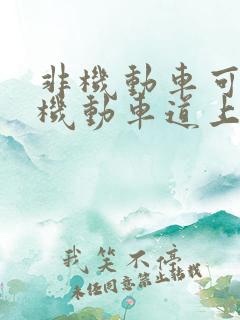 非機動車可
機動車道上
我笑不停
未经同意禁止转载